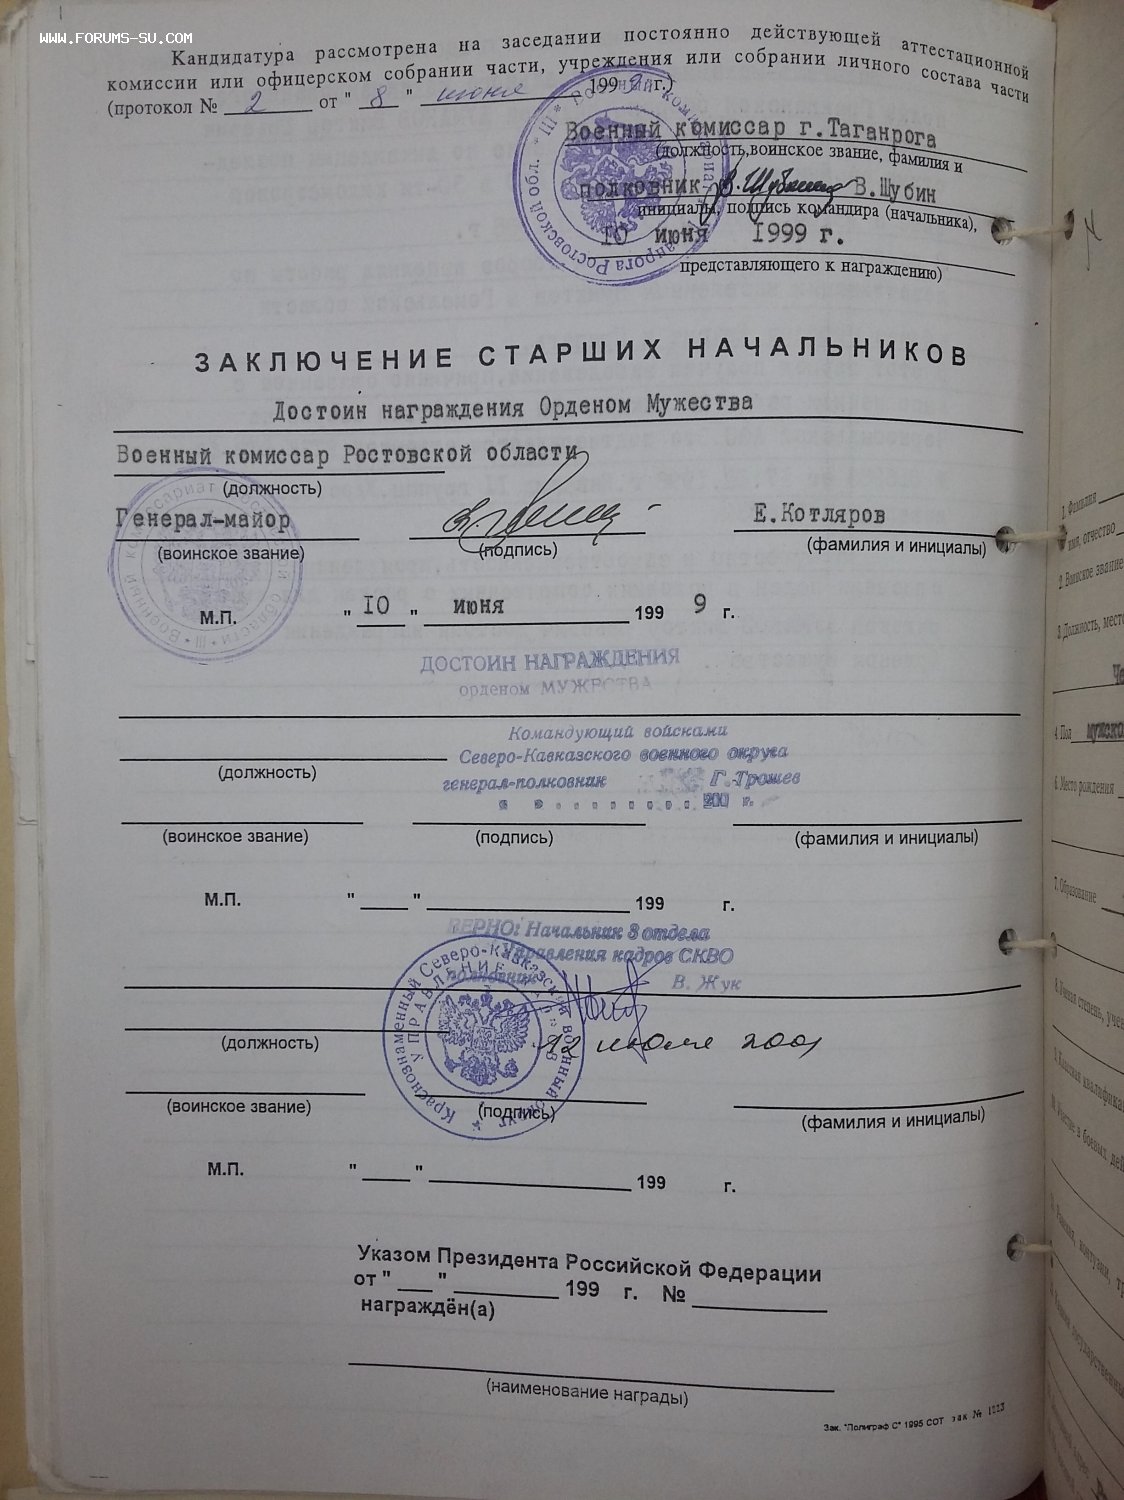 WWW.FORUMS-SU.COM
Кандидатура рассмотрена на заседании постоянно действующей аттестационной
комиссии или офицерском собрании части, учреждения или собрании личного состава части
(протокол № 2 от " 8 " июня 1999 г.)
Военный комиссар г.Таганрога
(должность, воинское звание, фамилия и
полковник В.Шубин
инициалы, подпись командира (начальника),
10 июня 1999 г.
представляющего к награждению)
ЗАКЛЮЧЕНИЕ СТАРШИХ НАЧАЛЬНИКОВ
Достоин награждения Орденом Мужества
Военный комиссар Ростовской области
(должность)
Генерал-майор Е.Котляров
(воинское звание) (подпись) (фамилия и инициалы)
М.П. " 10 " июня 199 9 г.
Военный комиссариат Ростовской области
ДОСТОИН НАГРАЖДЕНИЯ
орденом МУЖЕСТВА
Командующий войсками
Северо-Кавказского военного округа
(должность)
генерал-полковник Г.Трошев
200 г.
(воинское звание) (подпись) (фамилия и инициалы)
М.П. " " 199 г.
ВЕРНО: Начальник 3 отдела
Управления кадров СКВО
полковник В. Жук
Краснознаменный Северо-Кавказский военный округ
УПРАВЛЕНИЕ
12 июля 2001
(должность)
(воинское звание) (подпись) (фамилия и инициалы)
М.П. " " 199 г.
Указом Президента Российской Федерации
от " " 199 г. №
награждён(а)
(наименование награды)
Зак. "Полиграф С" 1995 СОТ зак №
1. Фамилия
имя, отчество
2. Воинское звание
3. Должность, место
4. Пол
6. Место рождения
7. Образование